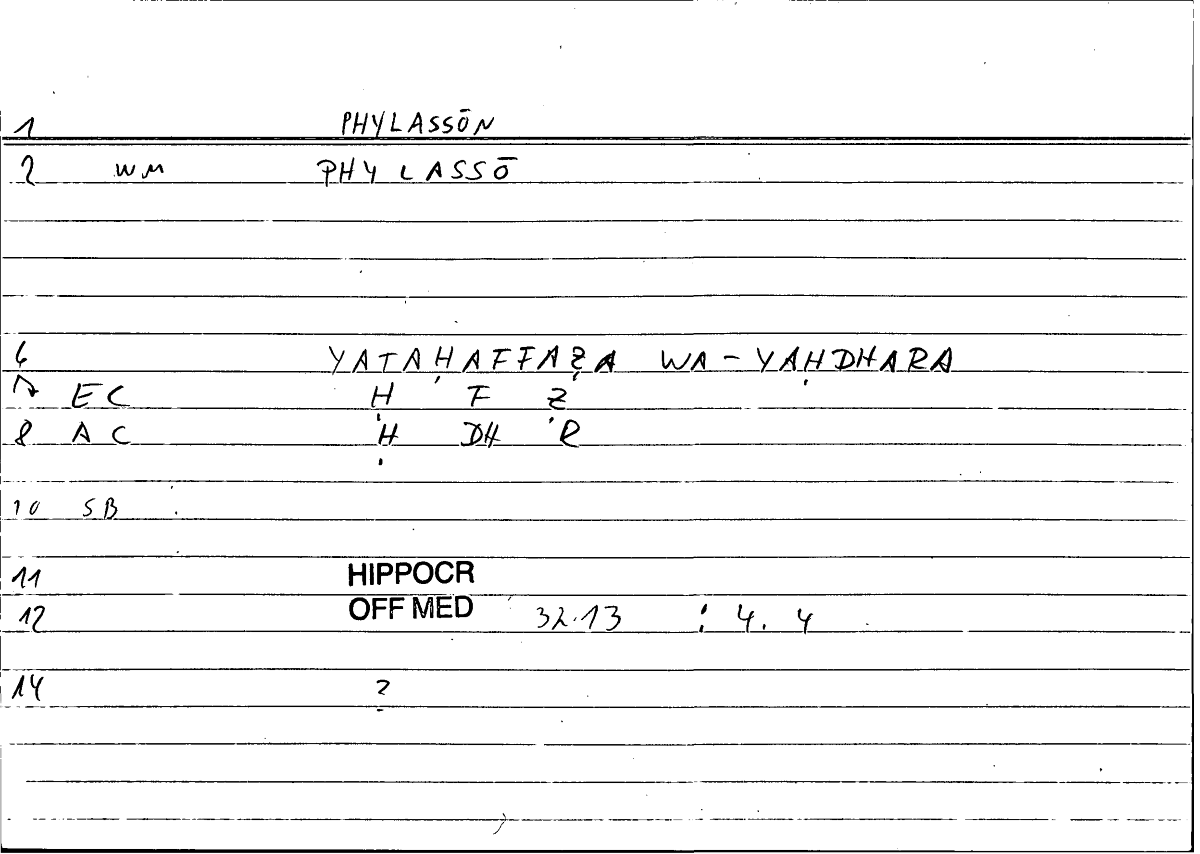 1 PHYLASSŌN
2 WM PHYLASSŌ
6 YATAḤAFFAẒA WA-YAḤDHARA
7 EC Ḥ F Ẓ
8 AC Ḥ DH R
10 SB
11 HIPPOCR
12 OFF MED 32.13 : 4. 4
14 2